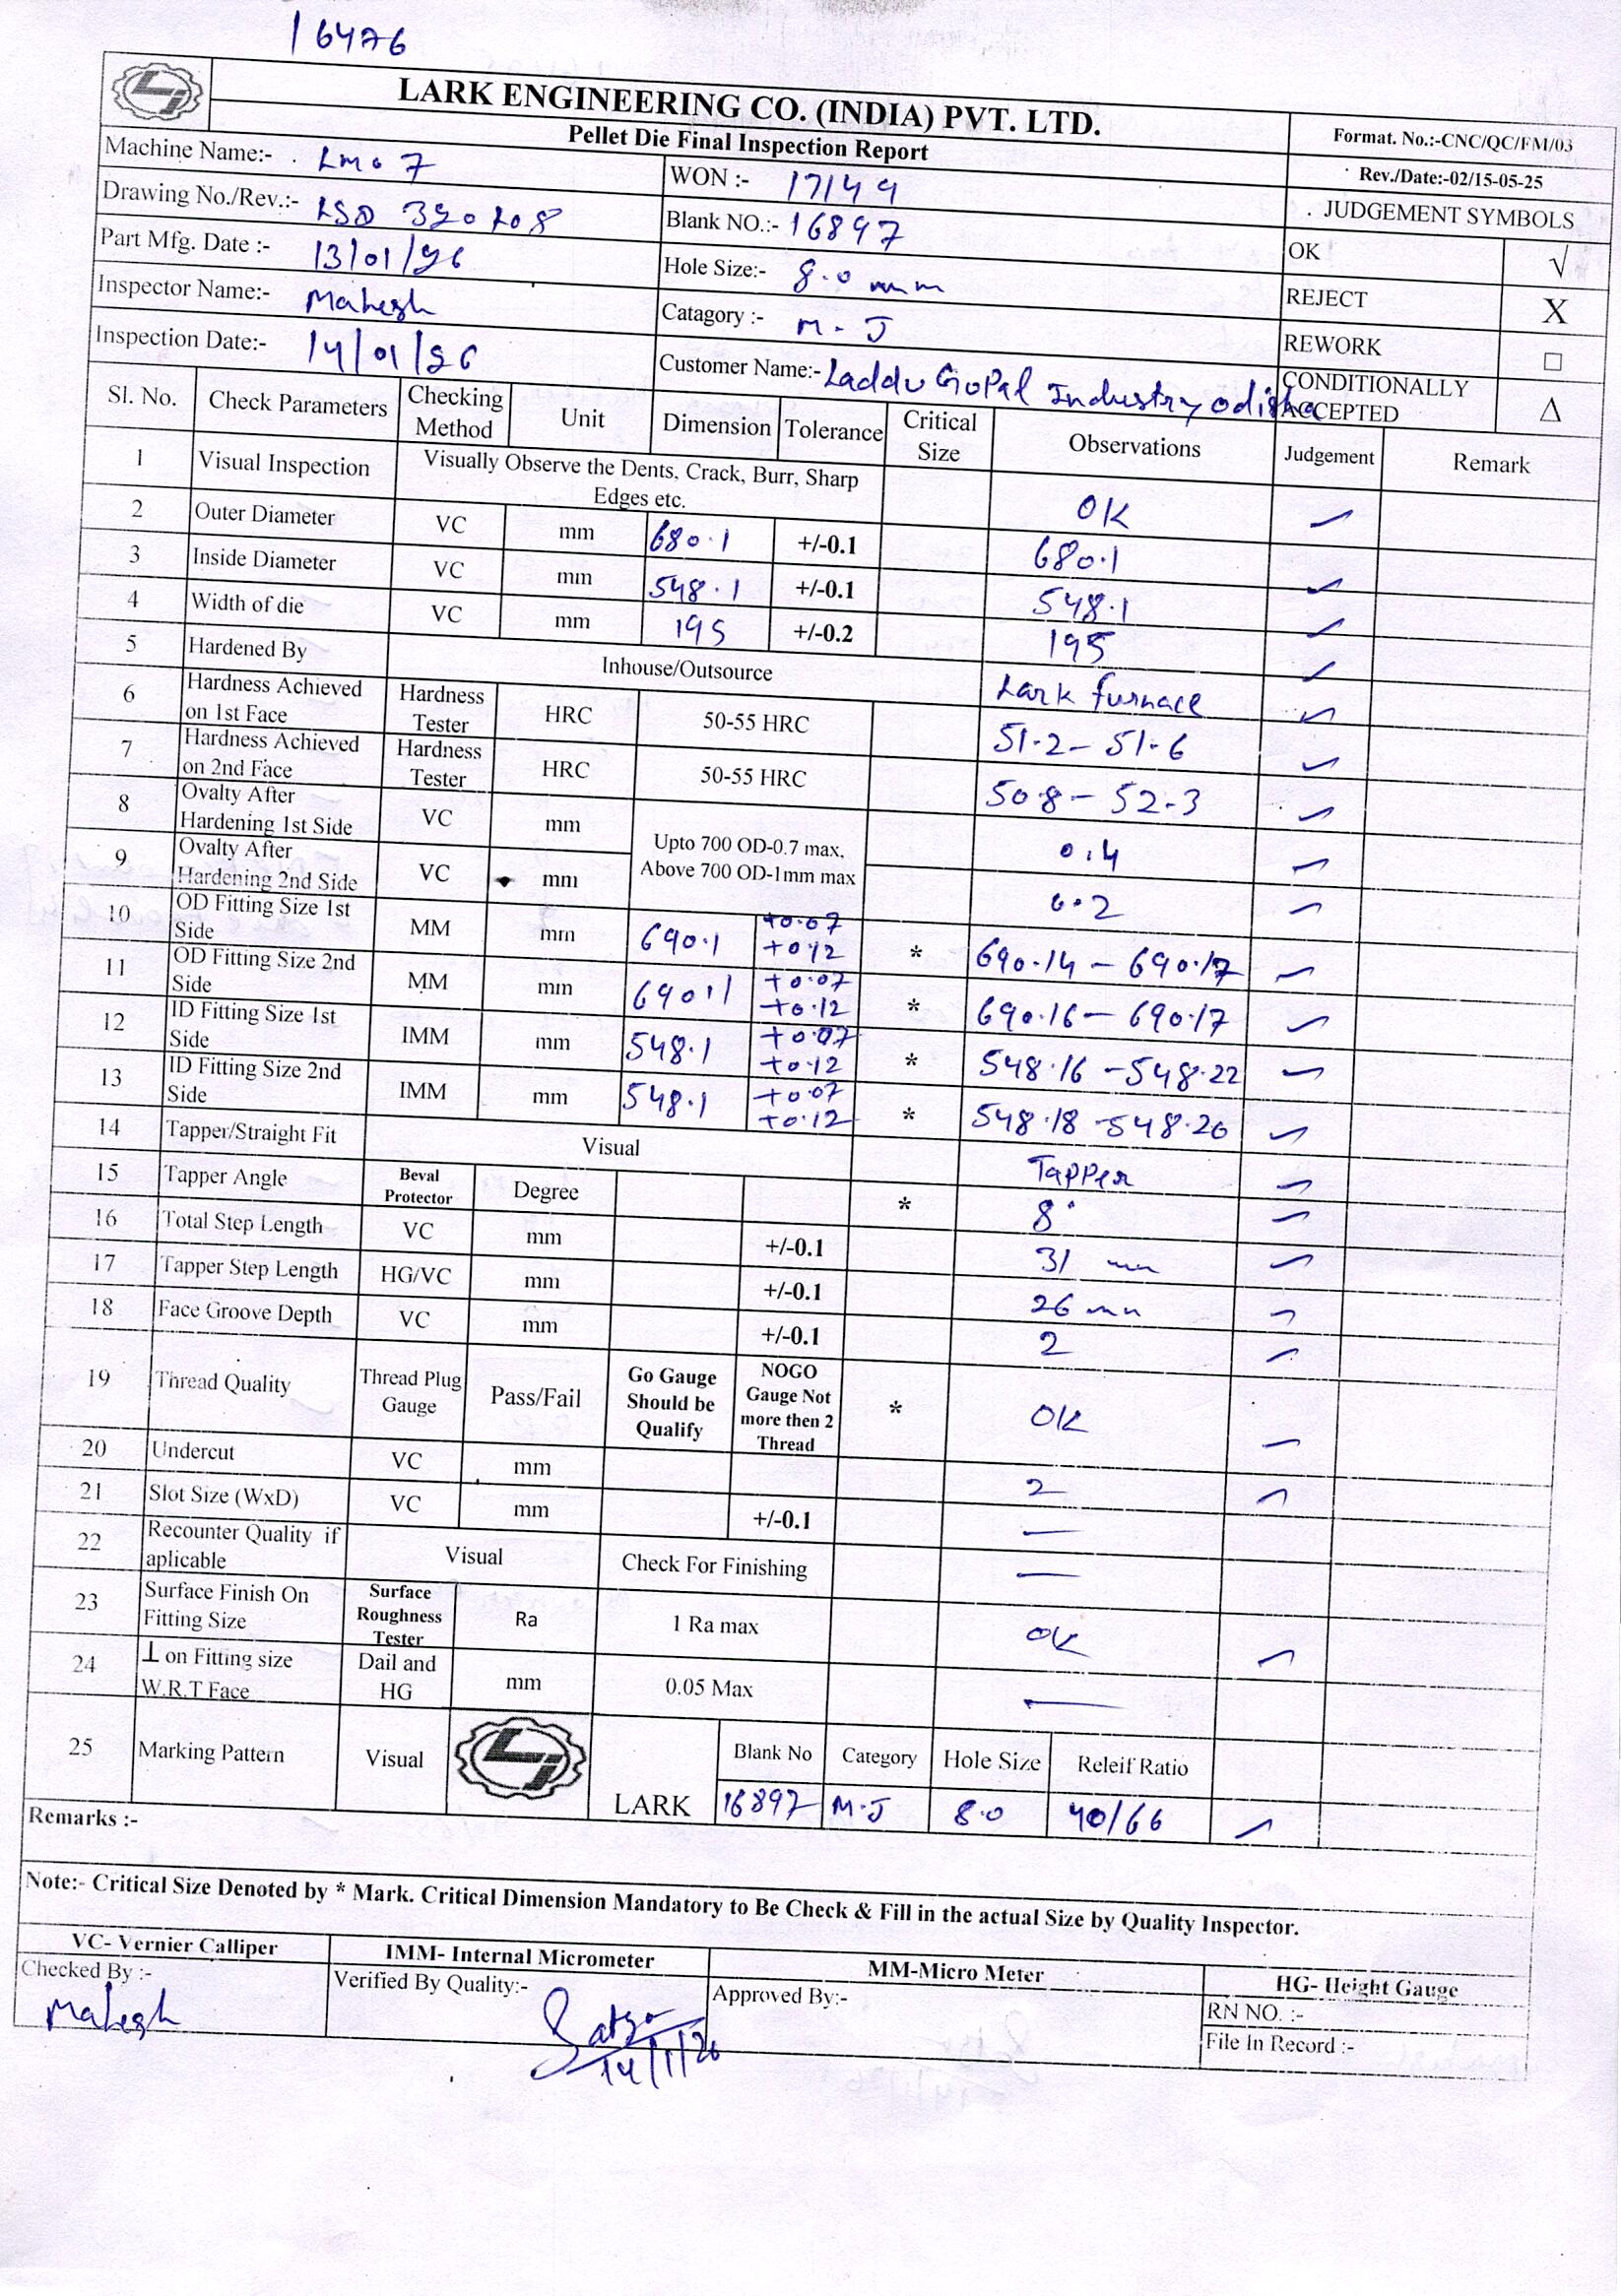 16476
LARK ENGINEERING CO. (INDIA) PVT. LTD.
Pellet Die Final Inspection Report
Format. No.:-CNC/QC/FM/03
Rev./Date:-02/15-05-25
Machine Name:- Lm07 WON :- 17149 JUDGEMENT SYMBOLS
Drawing No./Rev.:- LSD 320 Blank NO.:- 16897 OK √
Part Mfg. Date :- 13/01/26 Hole Size:- 8.0 mm REJECT X
Inspector Name:- Mahesh Catagory :- M-J REWORK □
Inspection Date:- 14/01/26 Customer Name:- Laddu GoPal Industry odisha CONDITIONALLY ACCEPTED Δ
Sl. No. Check Parameters Checking Method Unit Dimension Tolerance Critical Size Observations Judgement Remark
1 Visual Inspection Visually Observe the Dents, Crack, Burr, Sharp Edges etc. OK ✓
2 Outer Diameter VC mm 680.1 +/-0.1 680.1 ✓
3 Inside Diameter VC mm 548.1 +/-0.1 548.1 ✓
4 Width of die VC mm 195 +/-0.2 195 ✓
5 Hardened By Inhouse/Outsource Lark furnace ✓
6 Hardness Achieved on 1st Face Hardness Tester HRC 50-55 HRC 51.2 - 51.6 ✓
7 Hardness Achieved on 2nd Face Hardness Tester HRC 50-55 HRC 50.8 - 52.3 ✓
8 Ovalty After Hardening 1st Side VC mm Upto 700 OD-0.7 max, Above 700 OD-1mm max 0.4 ✓
9 Ovalty After Hardening 2nd Side VC mm 0.2 ✓
10 OD Fitting Size 1st Side MM mm 690.1 +0.07 +0.12 * 690.14 - 690.17 ✓
11 OD Fitting Size 2nd Side MM mm 690.1 +0.07 +0.12 * 690.16 - 690.17 ✓
12 ID Fitting Size 1st Side IMM mm 548.1 +0.07 +0.12 * 548.16 - 548.22 ✓
13 ID Fitting Size 2nd Side IMM mm 548.1 +0.07 +0.12 * 548.18 - 548.20 ✓
14 Tapper/Straight Fit Visual Tapper ✓
15 Tapper Angle Beval Protector Degree * 8° ✓
16 Total Step Length VC mm +/-0.1 31 mm ✓
17 Tapper Step Length HG/VC mm +/-0.1 26 mm ✓
18 Face Groove Depth VC mm +/-0.1 2 ✓
19 Thread Quality Thread Plug Gauge Pass/Fail Go Gauge Should be Qualify NOGO Gauge Not more then 2 Thread * OK ✓
20 Undercut VC mm 2 ✓
21 Slot Size (WxD) VC mm +/-0.1 —
22 Recounter Quality if aplicable Visual Check For Finishing —
23 Surface Finish On Fitting Size Surface Roughness Tester Ra 1 Ra max OK ✓
24 ⊥ on Fitting size W.R.T Face Dail and HG mm 0.05 Max —
25 Marking Pattern Visual LARK Blank No Category Hole Size Releif Ratio
16897 M-J 8.0 40/66 ✓
Remarks :-
Note:- Critical Size Denoted by * Mark. Critical Dimension Mandatory to Be Check & Fill in the actual Size by Quality Inspector.
VC- Vernier Calliper IMM- Internal Micrometer MM-Micro Meter HG- Height Gauge
Checked By :- Mahesh Verified By Quality:- 14/1/26 Approved By:- RN NO. :-
File In Record :-